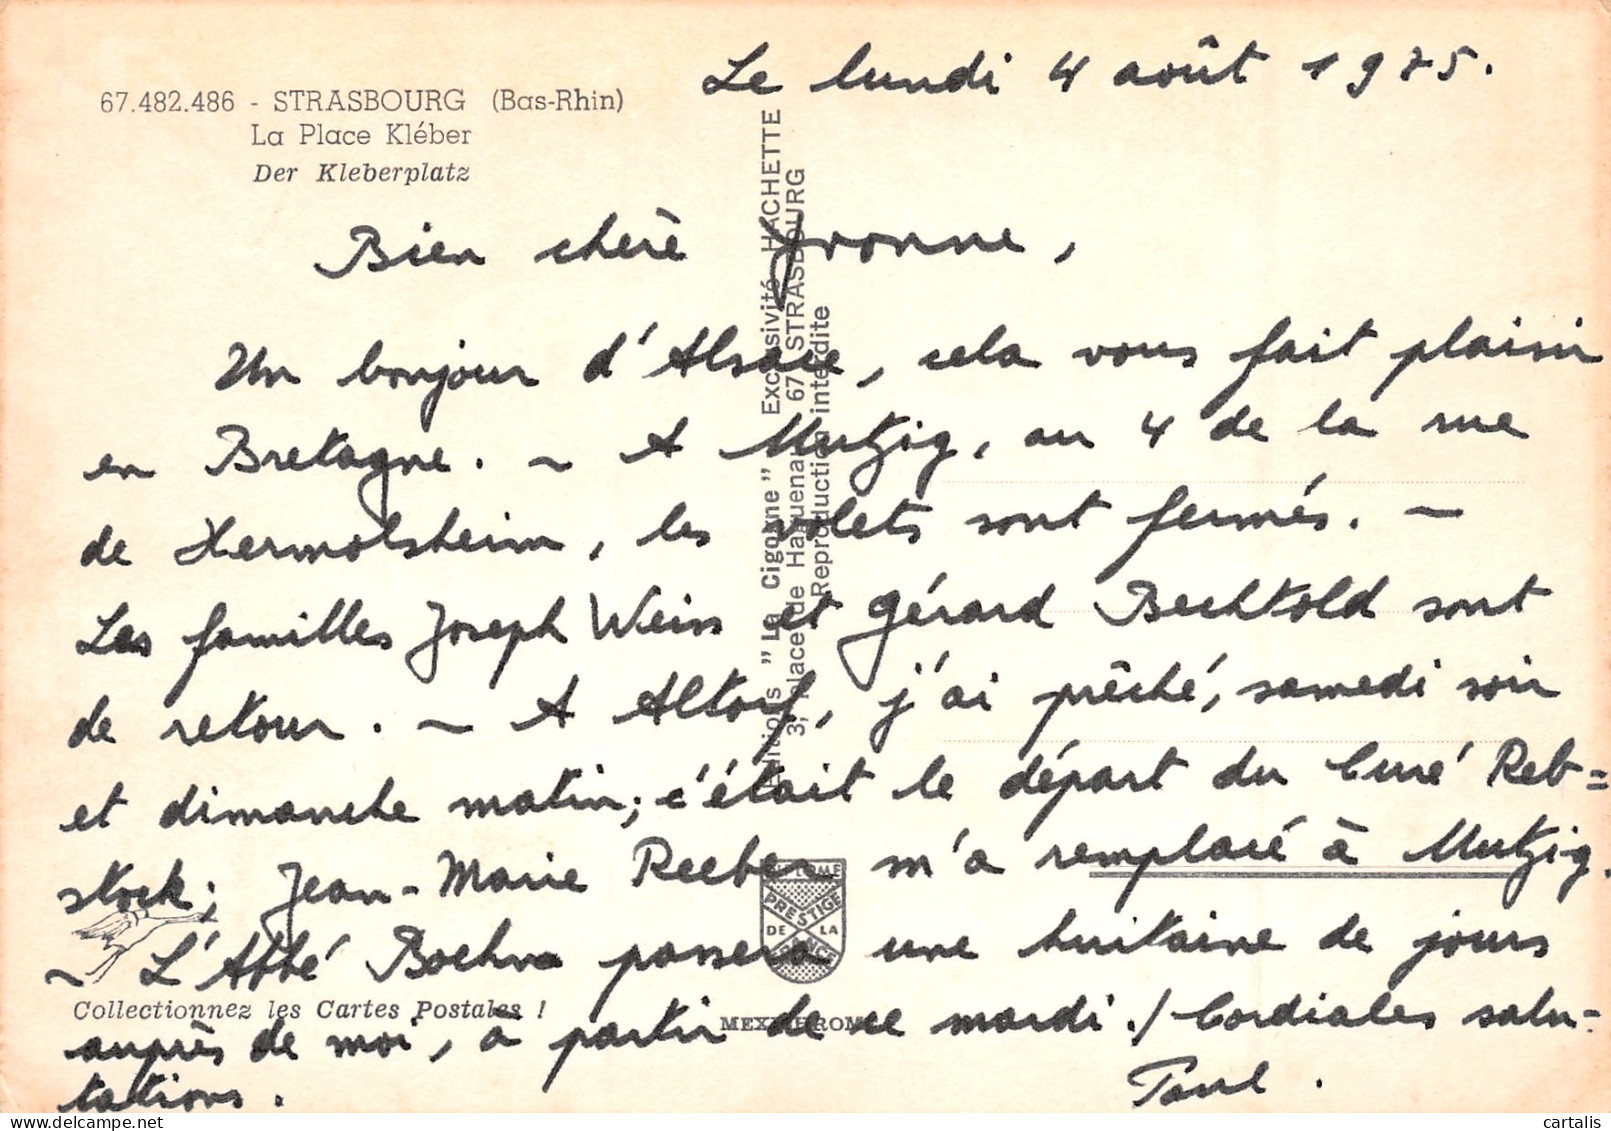 Le lundi 4 août 1975.
67.482.486 - STRASBOURG (Bas-Rhin)
La Place Kléber
Der Kleberplatz
Bien chère Yvonne,
Un bonjour d'Alsace, cela vous fait plaisir
en Bretagne. - A Mutzig, au 4 de la rue
de Hermolsheim, les volets sont fermés. -
Les familles Joseph Weiss et Gérard Bechtold sont
de retour. - A Altorf, j'ai prêché, samedi soir
et dimanche matin; c'était le départ du Curé Reb=
stock; Jean-Marie Reeber m'a remplacé à Mutzig.
- L'Abbé Boehm passera une huitaine de jours
auprès de moi, à partir de ce mardi./ Cordiales salu-
tations.
Paul.
Editions "La Cigogne" Exclusivité HACHETTE
3, place de Haguenau 67 STRASBOURG
Reproduction interdite
DIPLOME
PRESTIGE
DE LA
FRANCE
Collectionnez les Cartes Postales !
MEXICHROME
cartalis